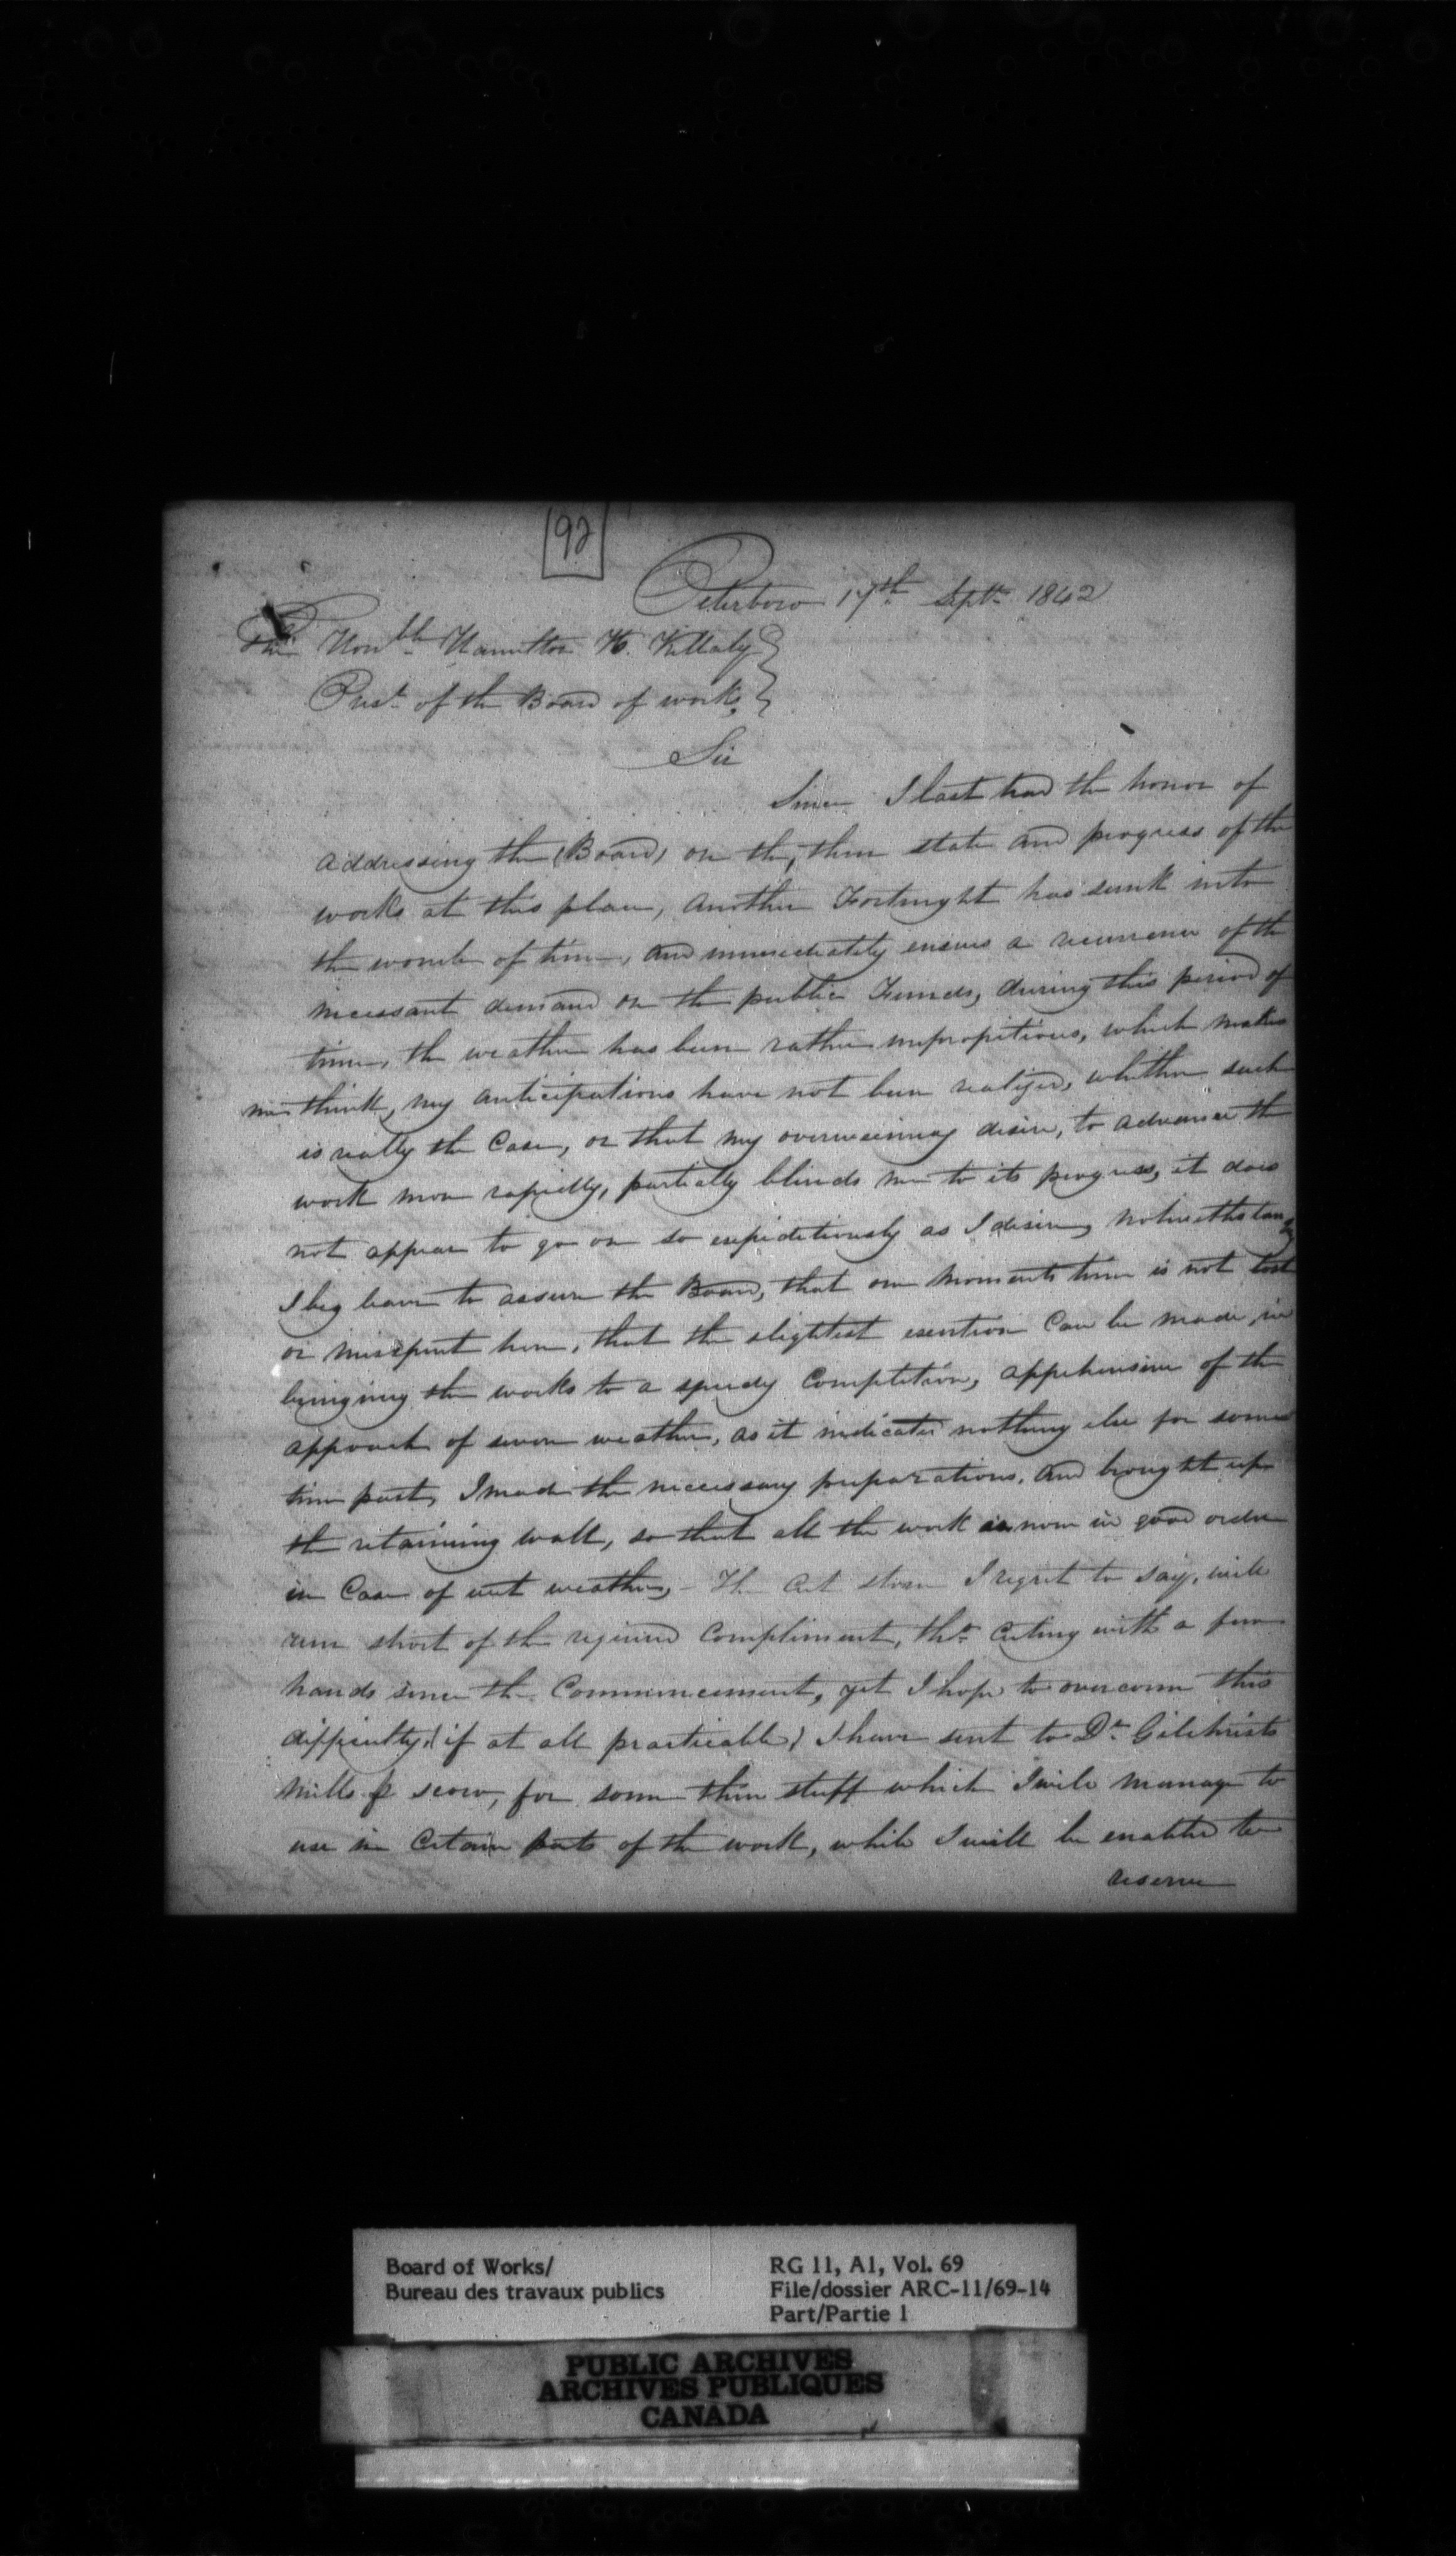 92
Peterboro 17th Septr 1842
The Honble Hamilton H. Killaly
Prest of the Board of works
Sir
Since I last had the honor of
addressing the (Board) on the, then state and progress of the
works at this place, another Fortnight has sunk into
the womb of time, and immediately ensues a recurrence of the
incessant demand on the public Funds, during this period of
time, the weather has been rather unpropitious, which makes
me think, my anticipations have not been realized, whether such
is really the Case, or that my overweening desire, to advance the
work more rapidly, partially blinds me to its progress, it does
not appear to go on so expeditiously as I desire, notwithstang
I beg leave to assure the Board, that one moments time is not lost
or misspent here, that the slightest exertion Can be made in
bringing the works to a speedy Completion, apprehensive of the
approach of severe weather, as it indicates nothing else for some
time past, I made the necessary preparations, and brought up
the retaining wall, so that all the work is now in good order
in Case of wet weather, - The Cut stone I regret to say, will
run short of the required Compliment, tho Cuting with a few
hands since the Commencement, yet I hope to overcome this
difficulty, (if at all practicable) I have sent to Dr Gilchrists
Mills scow, for some thin stuff which I will manage to
use in Certain parts of the work, while I will be enabled to
reserve
Board of Works/
Bureau des travaux publics
RG 11, A1, Vol. 69
File/dossier ARC-11/69-14
Part/Partie 1
PUBLIC ARCHIVES
ARCHIVES PUBLIQUES
CANADA